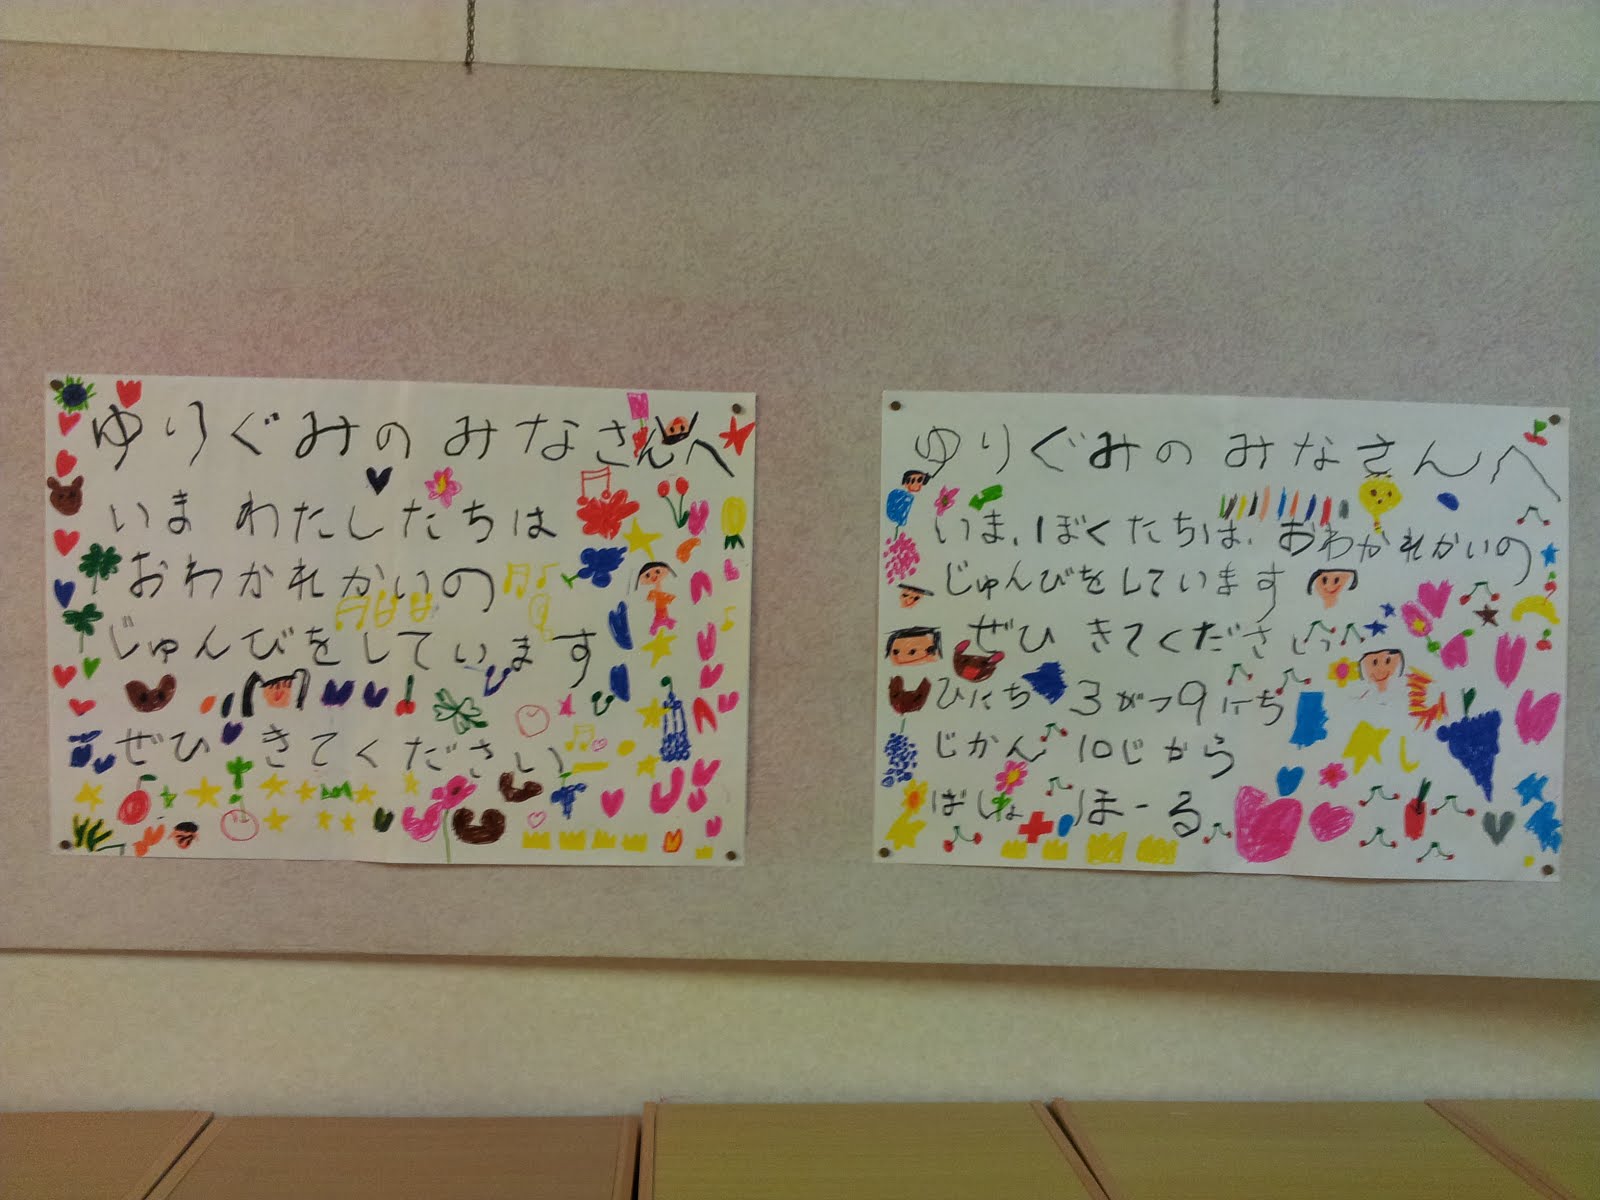 ゆりぐみの みなさんへ
いま わたしたちは
おわかれかいの
じゅんびをしています
ぜひ きてください
ゆりぐみの みなさんへ
いま、ぼくたちは、おわかれかいの
じゅんびをしています
ぜひ きてください
ひにち 3がつ9にち
じかん 10じから
ばしょ ほーる